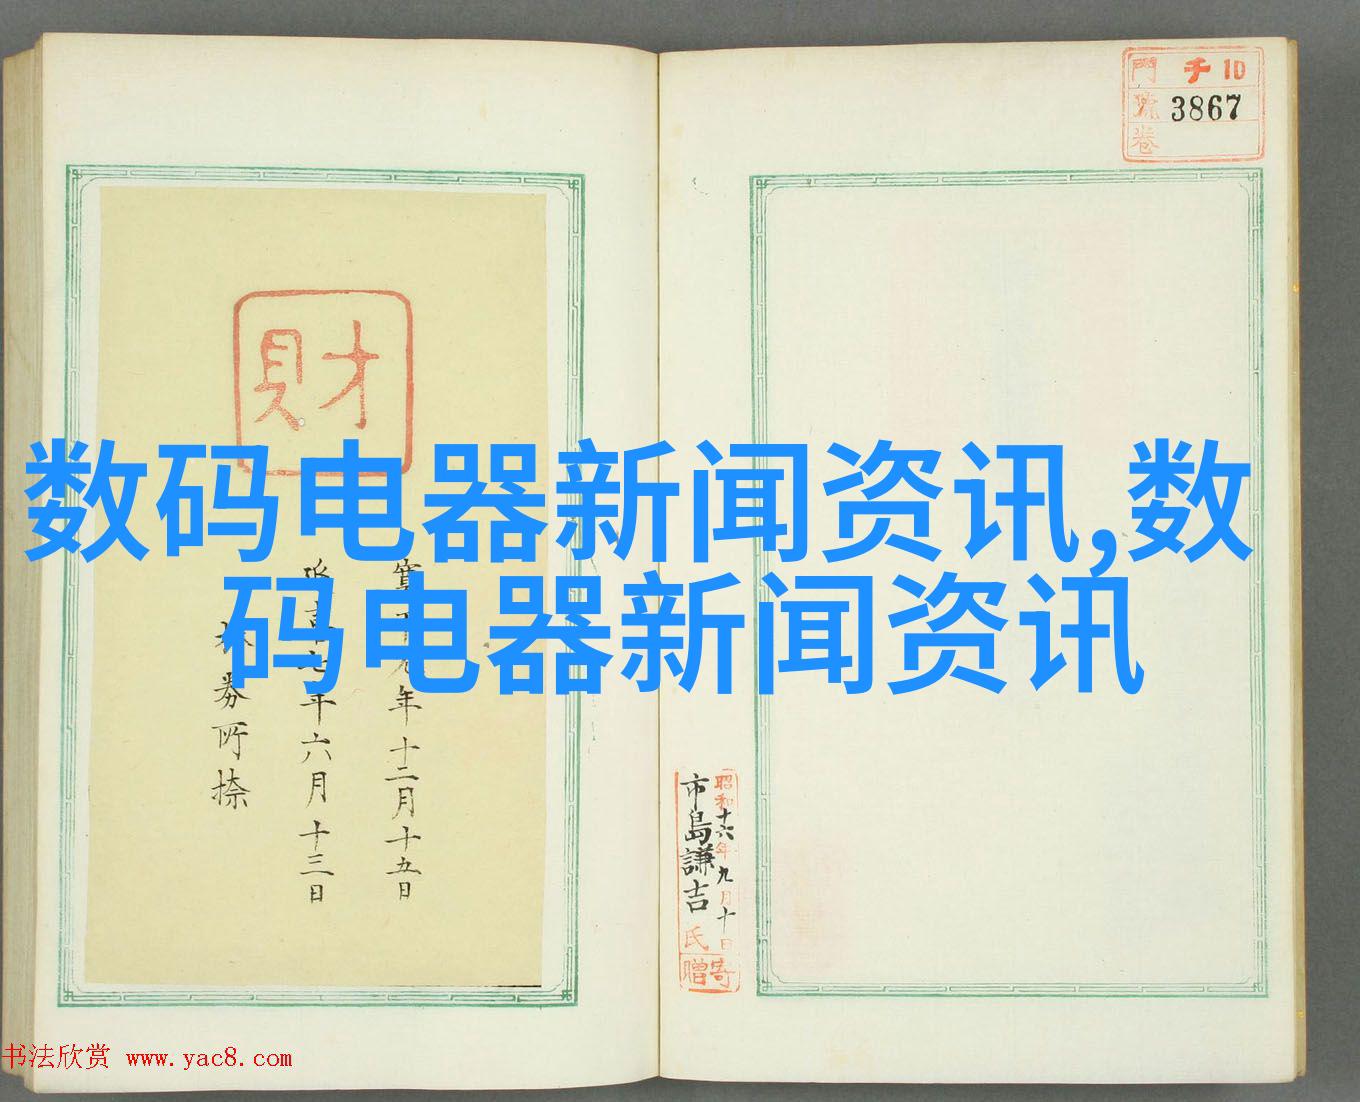 門 チ 10
號 3867
卷
財
数码电器新闻资讯,数
码电器新闻资讯
年十二月十五日
年六月十三日
券所捺
昭和十六年九月十日寄
市島謙吉氏贈
书法欣赏 www.yac8.com